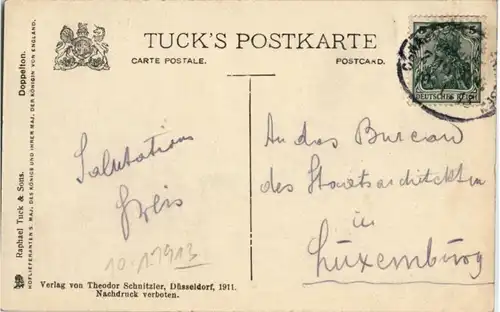 TUCK'S POSTKARTE
CARTE POSTALE. POSTCARD.
5
DEUTSCHES REICH
Raphael Tuck & Sons. Doppelton.
HOFLIEFERANTEN S. MAJ. DES KÖNIGS UND IHRER MAJ. DER KÖNIGIN VON ENGLAND.
Salutations
10.1.1913
An das Bureau
des Staatsarchitekten
in
Luxemburg
Verlag von Theodor Schnitzler, Düsseldorf, 1911.
Nachdruck verboten.